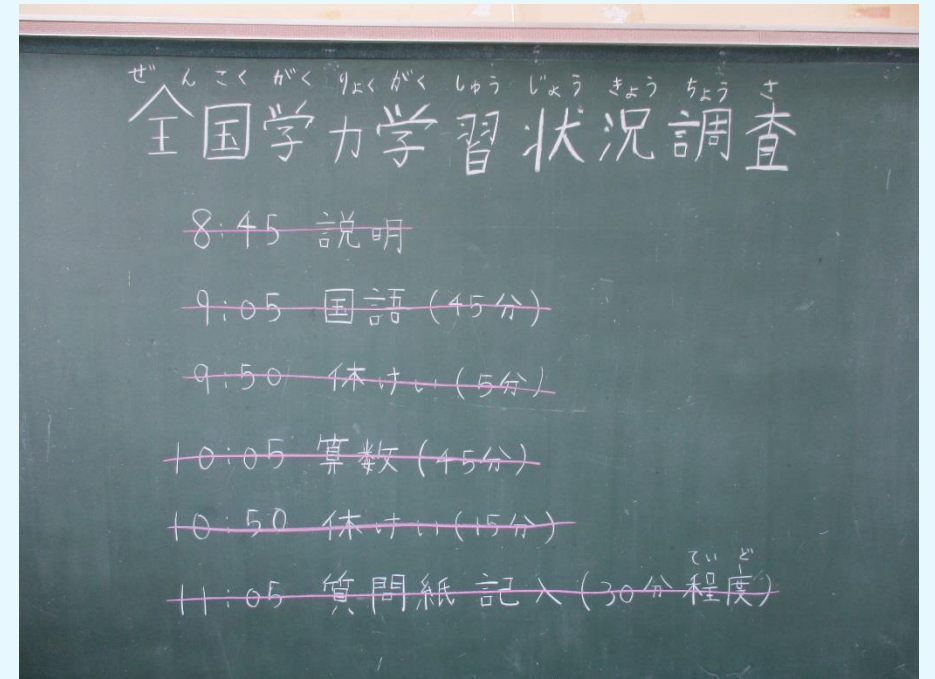 ぜんこくがくりょくがくしゅうじょうきょうちょうさ
全国学力学習状況調査
8:45 説明
9:05 国語(45分)
9:50 休けい(5分)
10:05 算数(45分)
10:50 休けい(15分)
ていど
11:05 質問紙記入(30分程度)